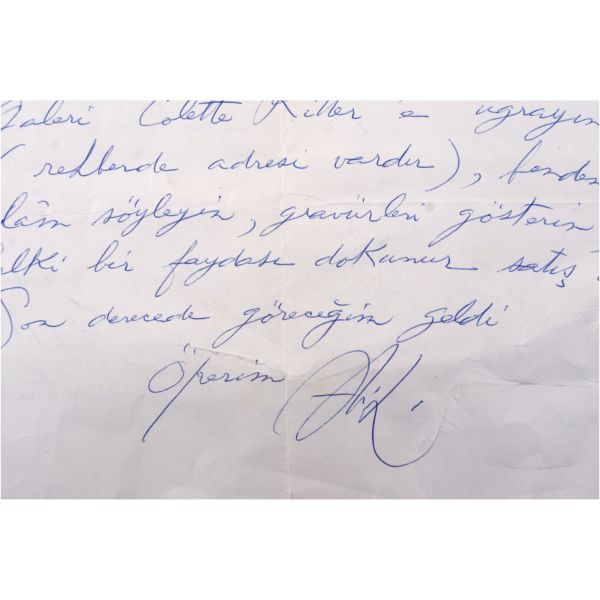 Galeri Colette Ritter'e uğrayın
(rehberde adresi vardır), benden
lâm söyleyin, gravürleri gösterin
elki bir faydası dokunur satış
Son derecede göreceğim geldi
Öperim